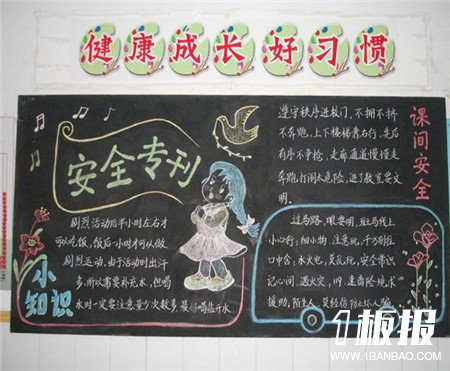 健康成长好习惯
安全专刊
剧烈活动后半小时左右才
可以吃饭，饭后一小时才可以做
剧烈运动，由于活动时出汗
多，所以需要补充水，但喝
水时一定要注意量少次数多，最好喝盐开水
小知识
课间安全
遵守秩序进校门，不拥不挤
不奔跑，上下楼梯靠右行，先后
有序不争抢，走廊通道慢慢走
奔跑打闹太危险，进了教室要文
明。
过马路，眼要明，斑马线上
小心行，细小物，注意玩，千万别往
口中含，水火电，莫乱玩，安全常识
记心间，遇火灾，
援助，陌生人，莫轻信防止坏人骗
1板报
WWW.1BANBAO.COM